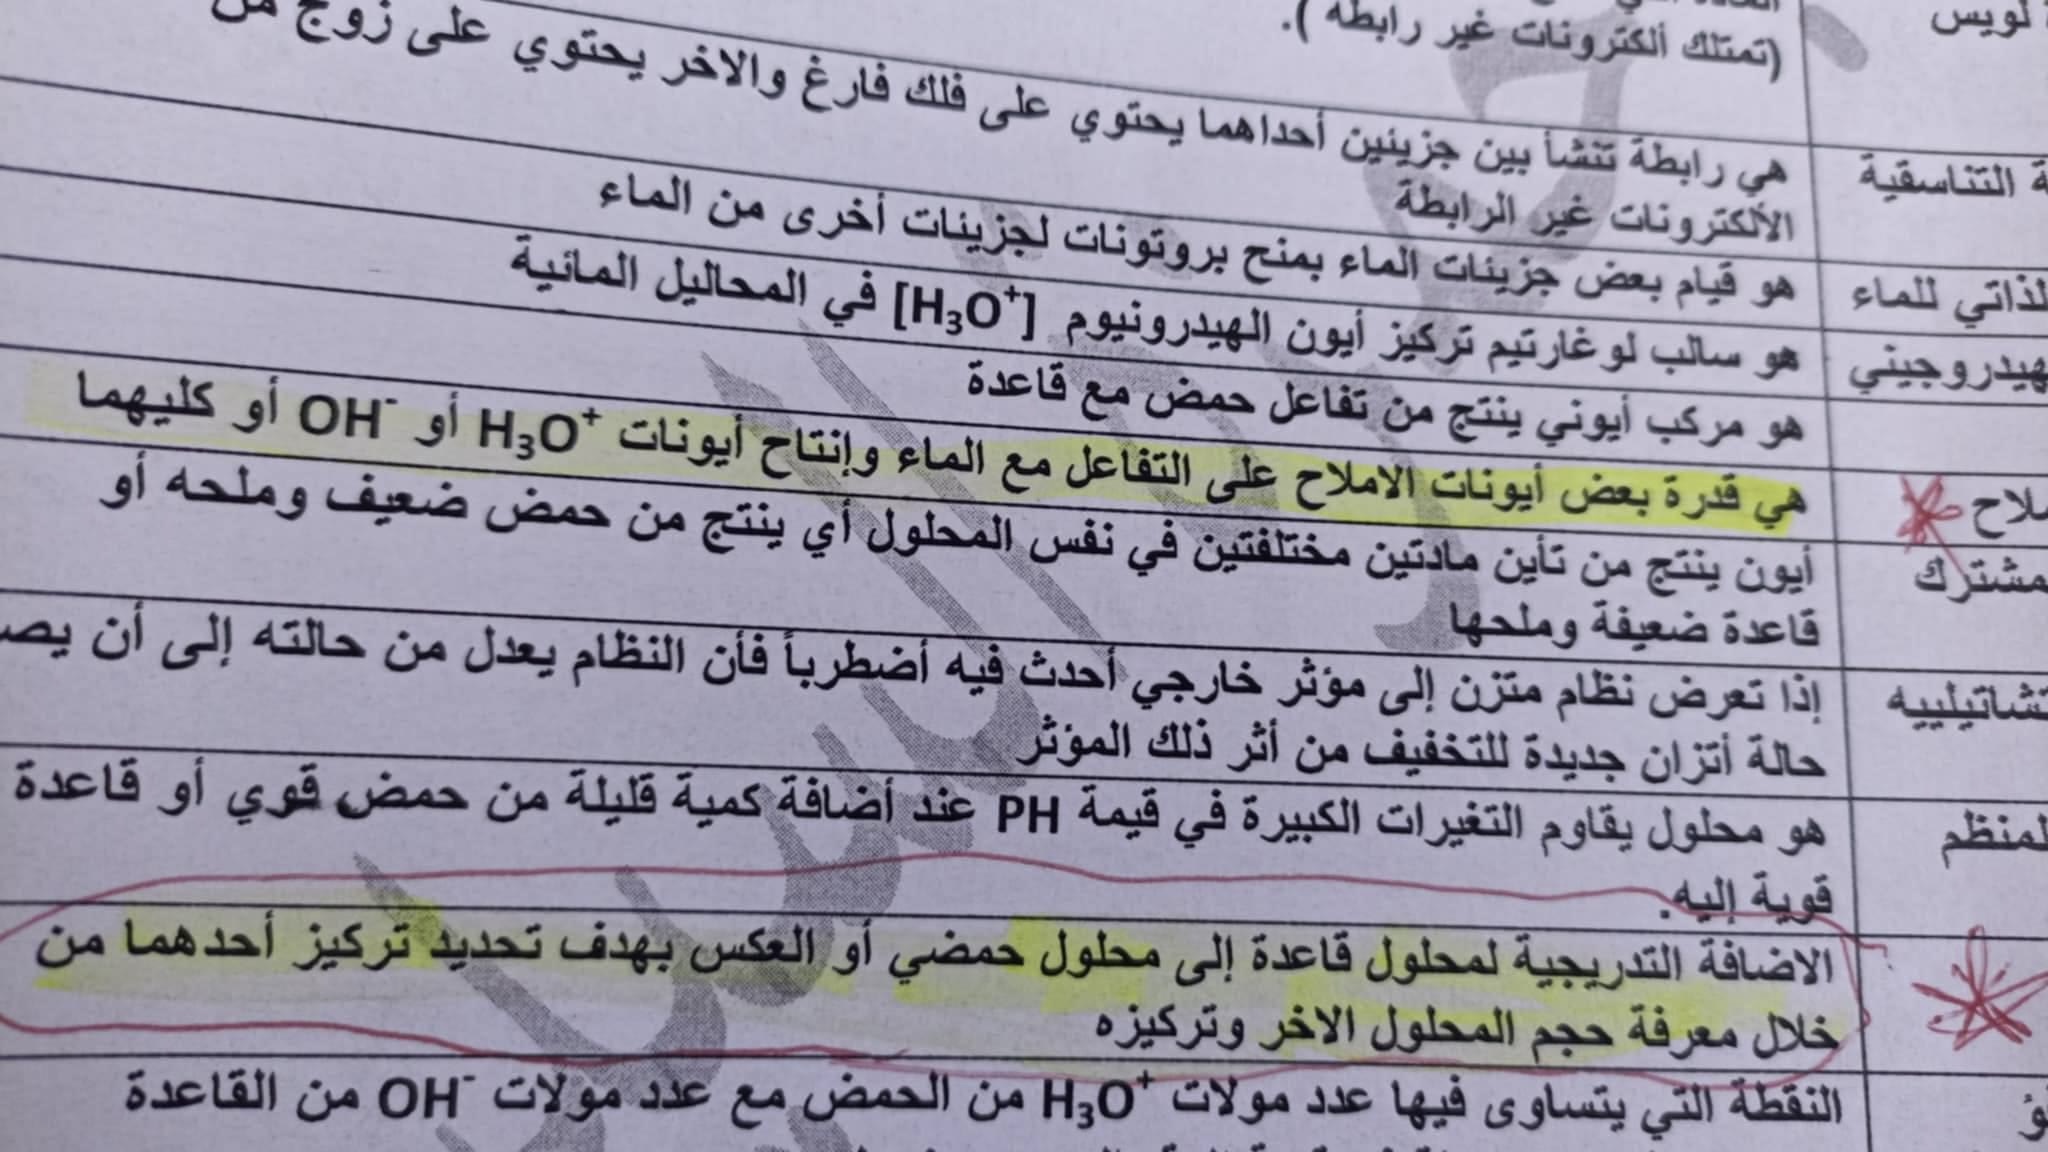 لويس
(تمتلك ألكترونات غير رابطة ).
التناسقية
هي رابطة تنشأ بين جزيئين أحداهما يحتوي على فلك فارغ والاخر يحتوي على زوج من
الألكترونات غير الرابطة
للماء
هو قيام بعض جزيئات الماء بمنح بروتونات لجزيئات أخرى من الماء
هو سالب لوغارتيم تركيز أيون الهيدرونيوم [H₃O⁺] في المحاليل المائية
هو مركب أيوني ينتج من تفاعل حمض مع قاعدة
هي قدرة بعض أيونات الاملاح على التفاعل مع الماء وإنتاج أيونات H₃O⁺ أو OH⁻ أو كليهما
أيون ينتج من تأين مادتين مختلفتين في نفس المحلول أي ينتج من حمض ضعيف وملحه أو
قاعدة ضعيفة وملحها
إذا تعرض نظام متزن إلى مؤثر خارجي أحدث فيه أضطرباً فأن النظام يعدل من حالته إلى أن
حالة أتزان جديدة للتخفيف من أثر ذلك المؤثر
هو محلول يقاوم التغيرات الكبيرة في قيمة PH عند أضافة كمية قليلة من حمض قوي أو قاعدة
قوية إليه.
الاضافة التدريجية لمحلول قاعدة إلى محلول حمضي أو العكس بهدف تحديد تركيز أحدهما من
خلال معرفة حجم المحلول الاخر وتركيزه
النقطة التي يتساوى فيها عدد مولات H₃O⁺ من الحمض مع عدد مولات OH⁻ من القاعدة